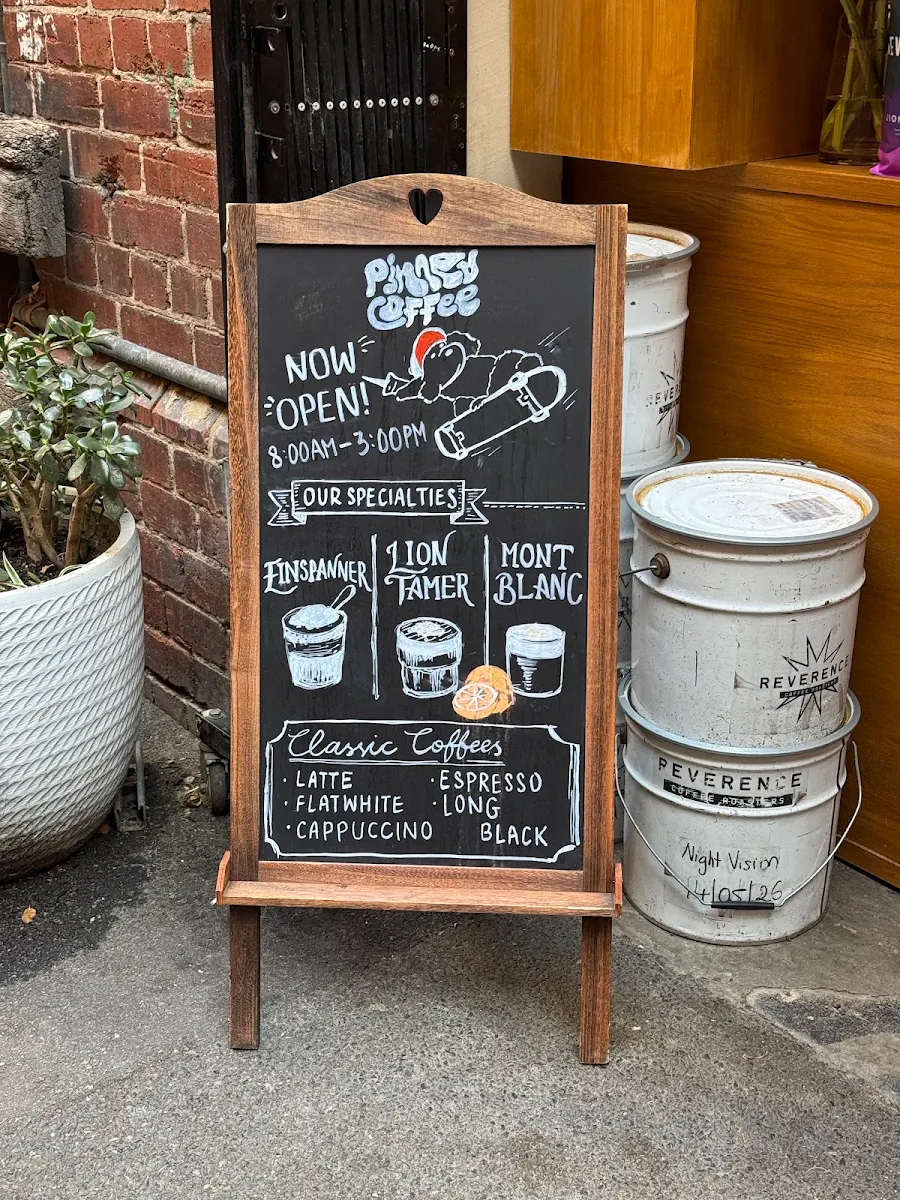 Pinned
Coffee
NOW
OPEN!
8:00AM-3:00PM
OUR SPECIALTIES
EINSPANNER
LION
TAMER
MONT
BLANC
Classic Coffees
· LATTE
· FLATWHITE
· CAPPUCCINO
· ESPRESSO
· LONG
BLACK
REVERENCE
REVERENCE
COFFEE ROASTERS
Night Vision
14/05/26